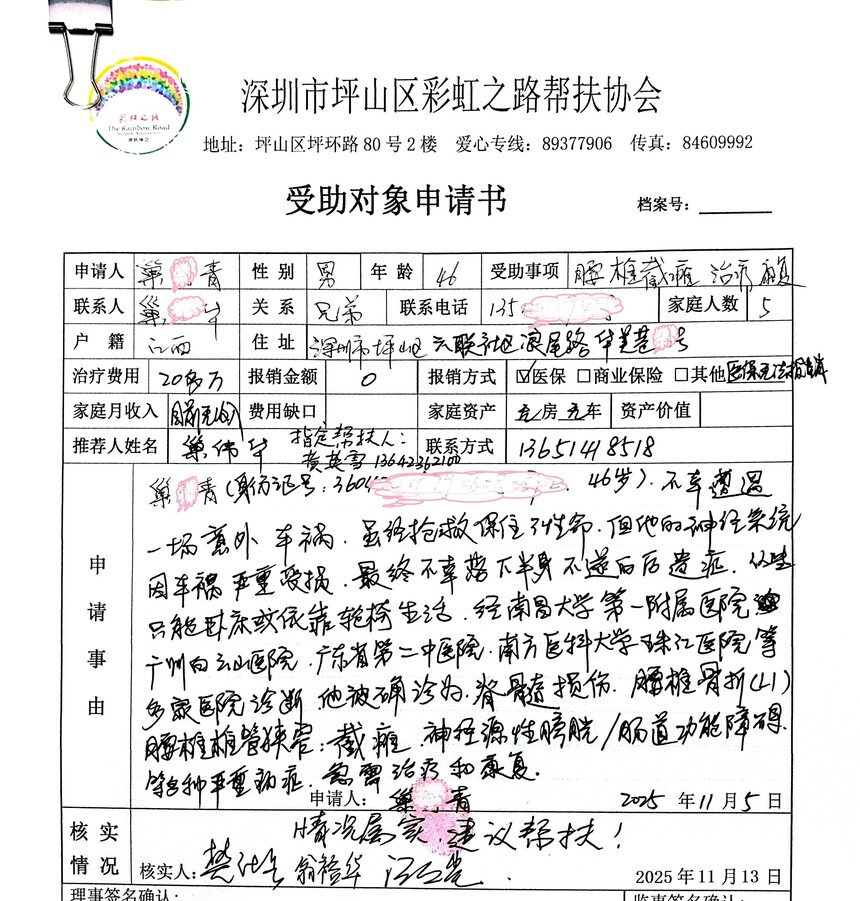 彩虹之路
The Rainbow Road
深圳市坪山区彩虹之路帮扶协会
地址：坪山区坪环路80号2楼 爱心专线：89377906 传真：84609992
受助对象申请书
档案号：
申请人 巢 青 性别 男 年龄 46 受助事项 腰椎截瘫治疗康复
联系人 巢 华 关系 兄弟 联系电话 135 家庭人数 5
户籍 江西 住址 深圳市坪山区六联社区浪尾路华美巷 号
治疗费用 20多万 报销金额 0 报销方式 ☑医保 □商业保险 □其他 医保无法报销
家庭月收入 目前无收入 费用缺口 家庭资产 无房 无车 资产价值
推荐人姓名 巢伟华 指定帮扶人：黄英雪 13642362100 联系方式 13651418518
申请事由
巢 青（身份证号：3604 、46岁）.不幸遭遇
一场意外车祸.虽经抢救保住了性命.但他的神经系统
因车祸严重受损.最终不幸落下半身不遂的后遗症.
只能卧床或依靠轮椅生活.经南昌大学第一附属医院
广州白云山医院.广东省第二中医院.南方医科大学珠江医院等
多家医院诊断.他被确诊为.脊髓损伤.腰椎骨折(L1)
腰椎椎管狭窄：截瘫.神经源性膀胱/肠道功能障碍.
等多种严重病症.急需治疗和康复.
申请人：巢 青 2025年11月5日
核实情况 情况属实.建议帮扶！
核实人： 翁裕华 2025年11月13日
理事签名确认： 监事签名确认：